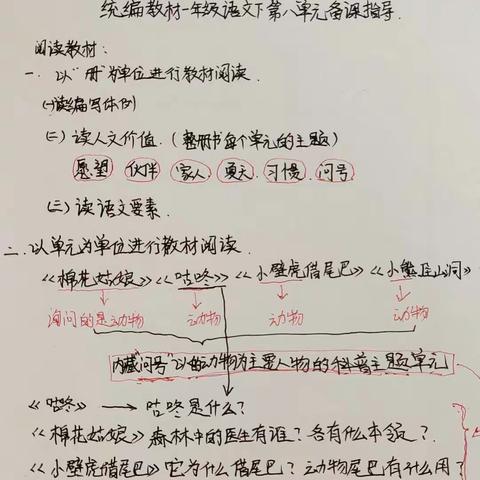 统编教材一年级语文下第八单元备课指导.
阅读教材:
一. 以"册"为单位进行教材阅读.
(一)读编写体例
(二) 读人文价值.(整册书每个单元的主题)
愿望 伙伴 家人 夏天 习惯 问号
(三) 读语文要素.
二. 以单元为单位进行教材阅读.
《棉花姑娘》《咕咚》《小壁虎借尾巴》《小熊住山洞》
询问的是动物 动物 动物 动物
内藏"问号"以动物为主要人物的科普主题单元
《咕咚》 → 咕咚是什么?
《棉花姑娘》森林中的医生有谁?各有什么本领?
《小壁虎借尾巴》它为什么借尾巴?动物尾巴有什么用?